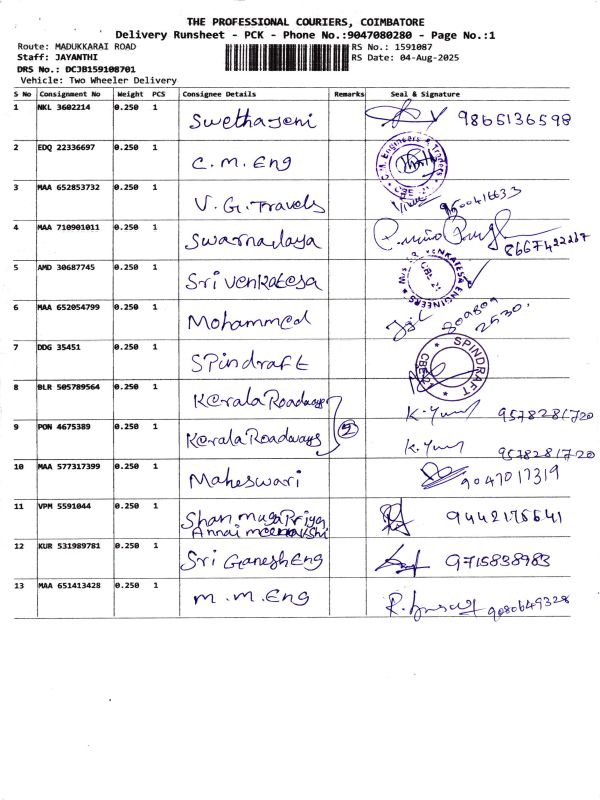 THE PROFESSIONAL COURIERS, COIMBATORE
Delivery Runsheet - PCK - Phone No.:9047080280 - Page No.:1
Route: MADUKKARAI ROAD RS No.: 1591087
Staff: JAYANTHI RS Date: 04-Aug-2025
DRS No.: DCJB159108701
Vehicle: Two Wheeler Delivery
S No Consignment No Weight PCS Consignee Details Remarks Seal & Signature
1 NKL 3602214 0.250 1 Swethajeni 9865136598
2 EDQ 22336697 0.250 1 C.M. Eng C.M. Engineers & Traders
3 MAA 652853732 0.250 1 V.G. Travels
4 MAA 710901011 0.250 1 Swarnadaya 8667422217
5 AMD 30687745 0.250 1 Sri Venkatesa VENKATESA ENGINEERS
6 MAA 652054799 0.250 1 Mohammed
7 DDG 35451 0.250 1 SPindraft SPINDRAFT
8 BLR 505789564 0.250 1 Kerala Roadways K. 9578281720
9 PON 4675389 0.250 1 Kerala Roadways 2 K. 9578281720
10 MAA 577317399 0.250 1 Maheswari 9047017319
11 VPM 5591044 0.250 1 Shanmuga Priya 9442175541
Annai meenakshi
12 KUR 531989781 0.250 1 Sri Ganesh Eng 9715838983
13 MAA 651413428 0.250 1 M.M. Eng R. 9080649328